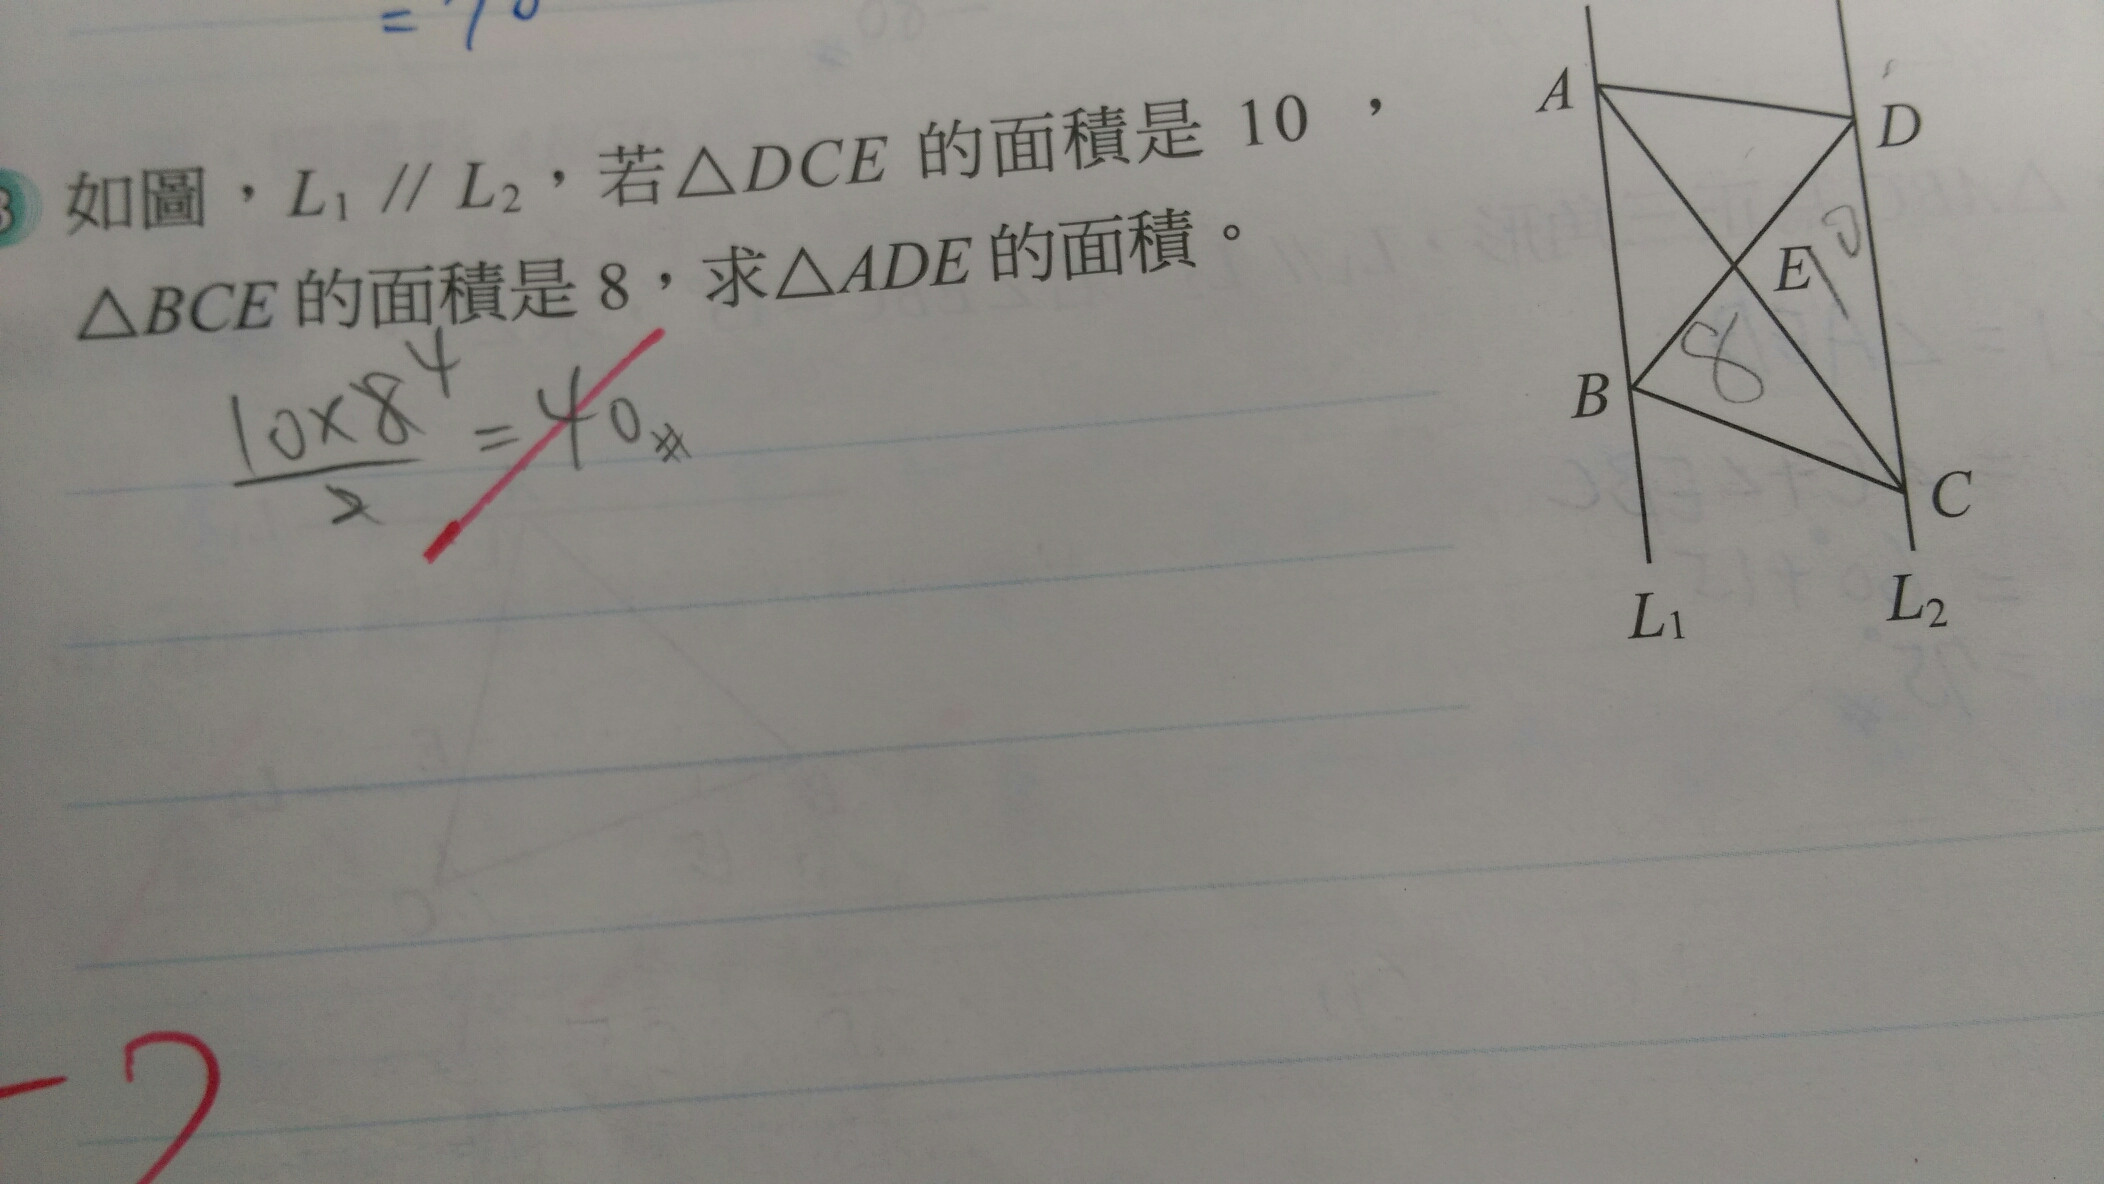 = 70
3 如圖，L₁ // L₂，若△DCE 的面積是 10 ，
△BCE 的面積是 8，求△ADE 的面積。
10×8 4
2
= 40#
A
D
E
10
8
B
C
L₁
L₂
-2